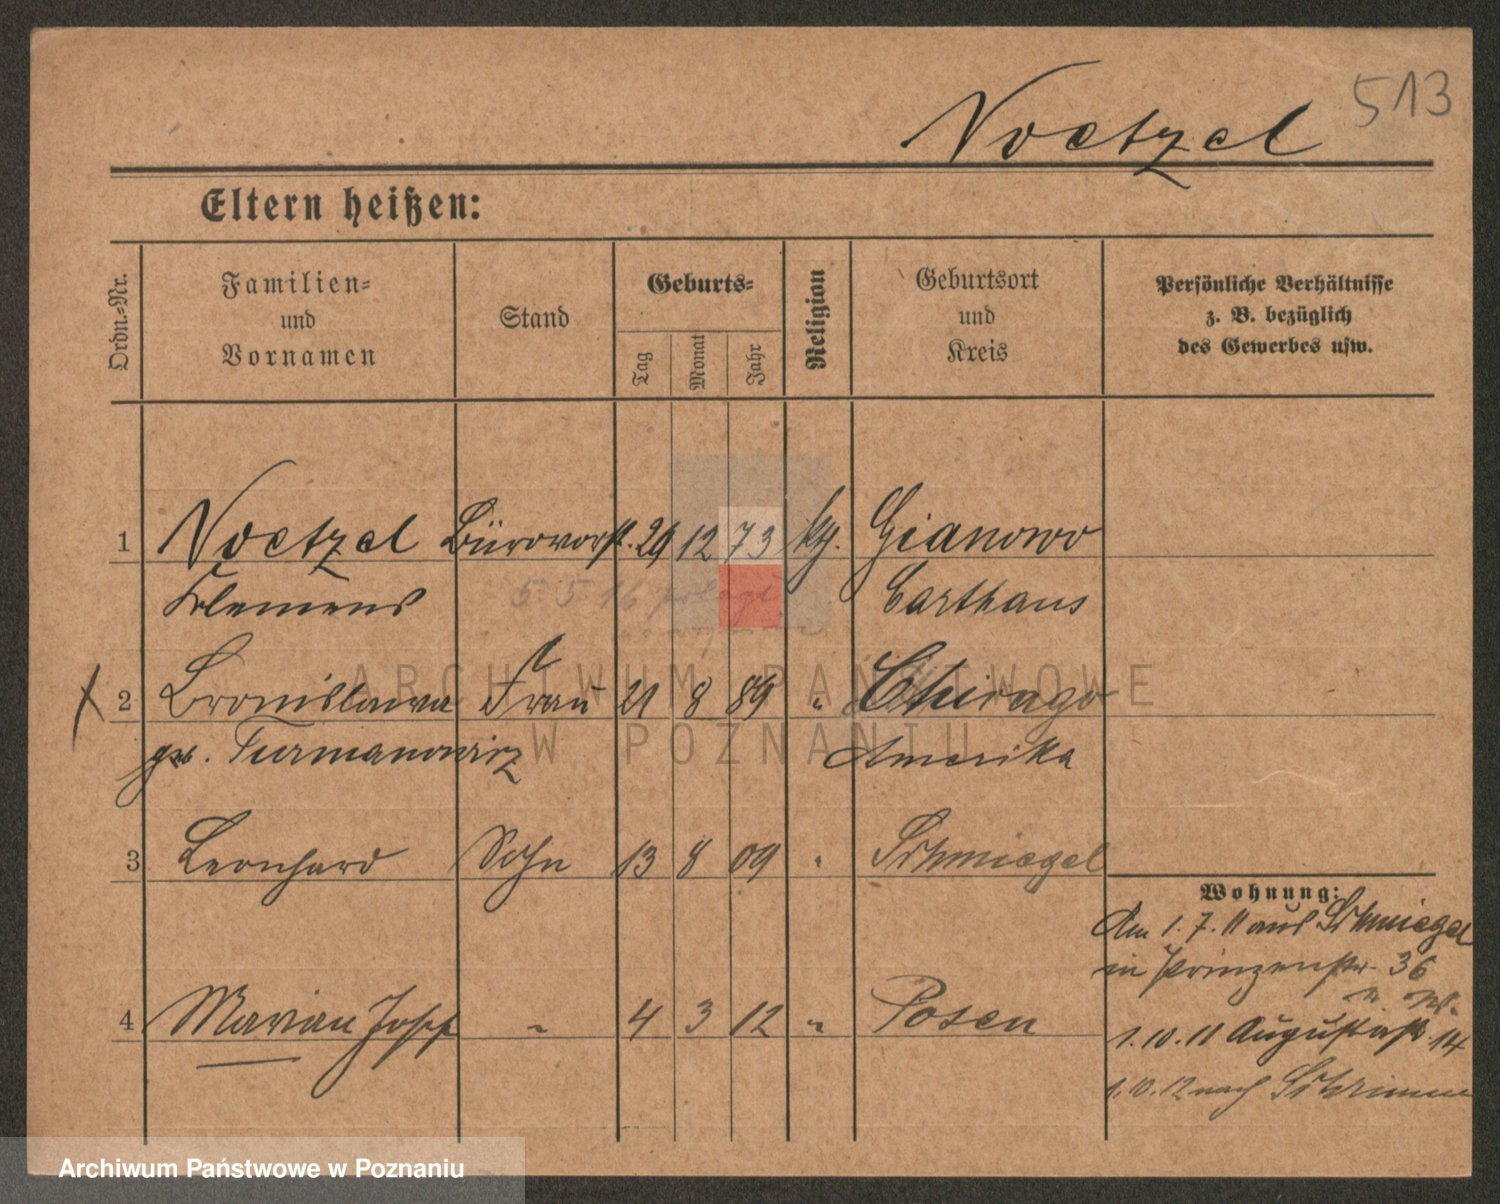 513
Noetzel
Eltern heißen:
Ordn.-Nr.
Familien-
und
Vornamen
Stand
Geburts-
Tag
Monat
Jahr
Religion
Geburtsort
und
Kreis
Persönliche Verhältnisse
z. B. bezüglich
des Gewerbes usw.
1 Noetzel Bürovorst. 29 12 73 kg. Gianowo
Klemens Carthaus
5. 5. 16
2 Bronislawa Frau 21 8 89 " Chicago
geb. Turmanowicz Amerika
3 Leonhard Sohn 13 8 09 " Schmiegel
Wohnung:
Am 1. 7. 11 aus Schmiegel
in Prinzenstr. 36
4 Marian Josef " 4 3 12 " Posen
1. 10. 11 Augustastr. 14
1. 10. 12 nach Schrimm
ARCHIWUM PAŃSTWOWE
W POZNANIU
Archiwum Państwowe w Poznaniu